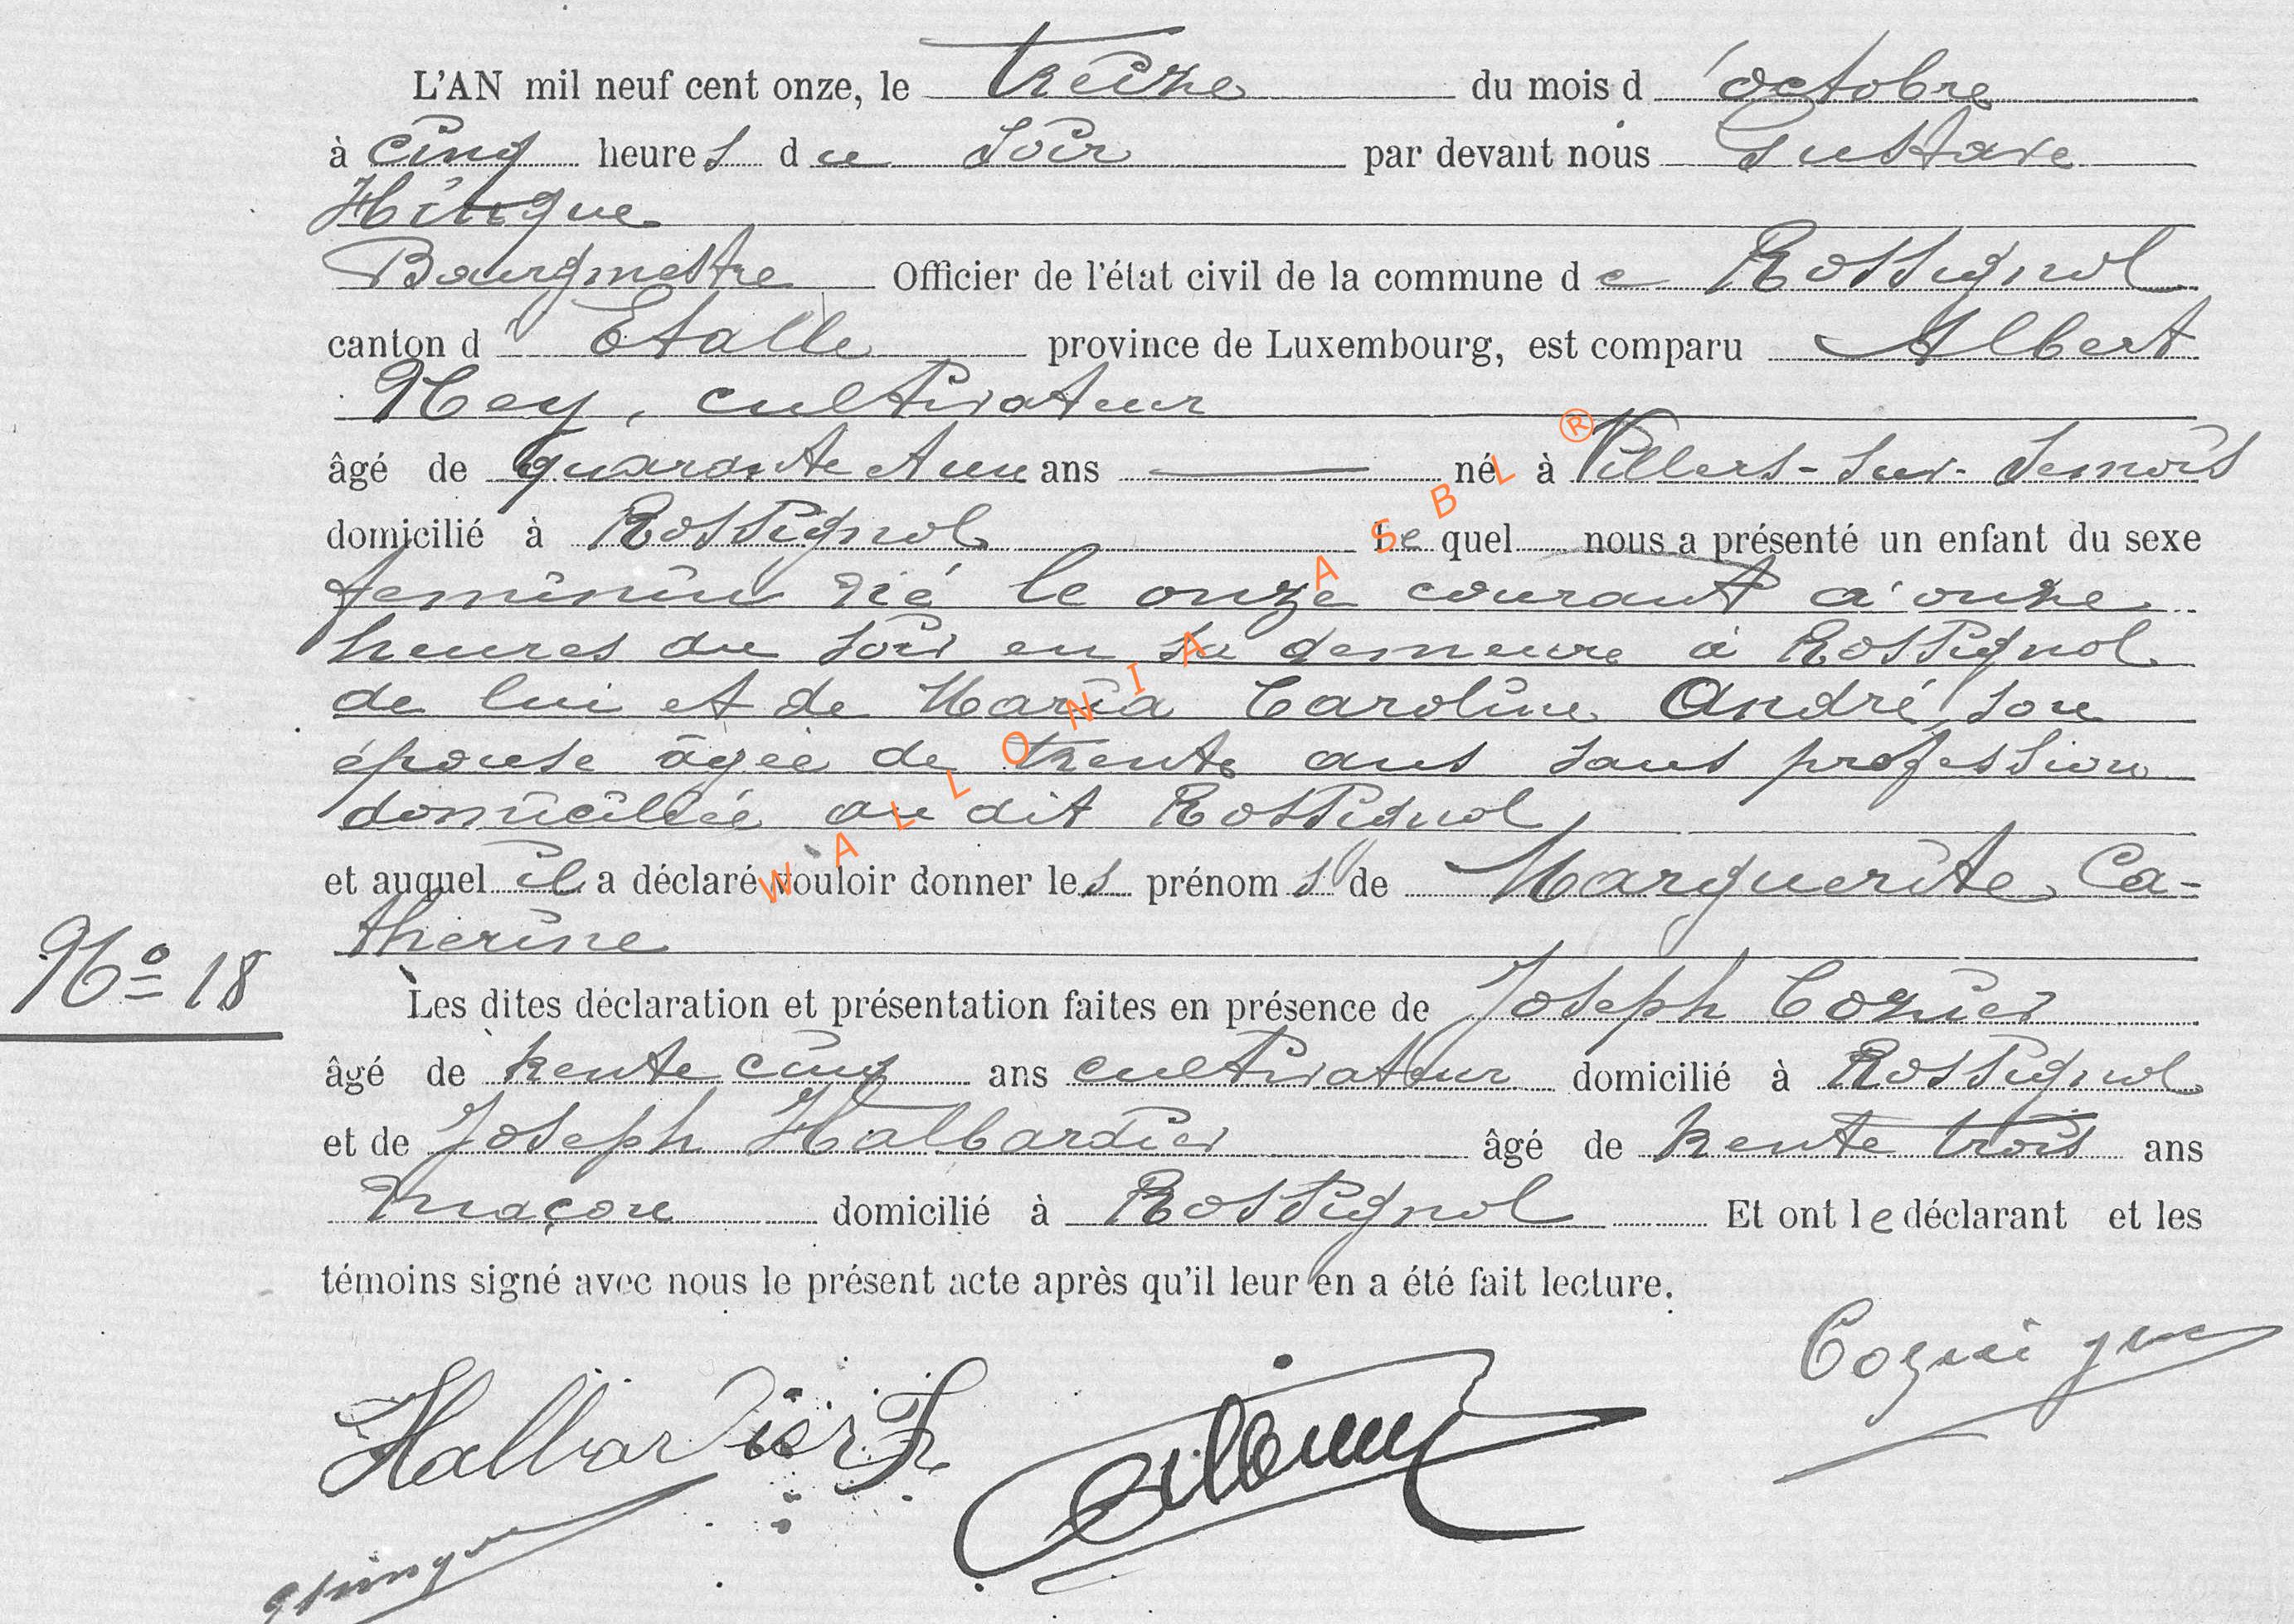 L'AN mil neuf cent onze, le treize du mois d'octobre
à cinq heures du soir par devant nous Gustave
Hingue
Bourgmestre Officier de l'état civil de la commune de Rossignol
canton d'Etalle province de Luxembourg, est comparu Albert
Ney, cultivateur
âgé de quarante et un ans né à Villers-sur-Semois
domicilié à Rossignol Le quel nous a présenté un enfant du sexe
feminin né le onze courant à onze
heures du soir en sa demeure à Rossignol
de lui et de Maria Caroline André, son
épouse âgée de trente ans sans profession
domiciliée au dit Rossignol
et auquel il a déclaré vouloir donner les prénoms de Marguerite, Ca=
therine
No 18
Les dites déclaration et présentation faites en présence de Joseph Cozier
âgé de trente cinq ans cultivateur domicilié à Rossignol
et de Joseph Halbardier âgé de trente trois ans
maçon domicilié à Rossignol Et ont le déclarant et les
témoins signé avec nous le présent acte après qu'il leur en a été fait lecture.
Halbardier
Hingue
WALLONIA ASBL ®